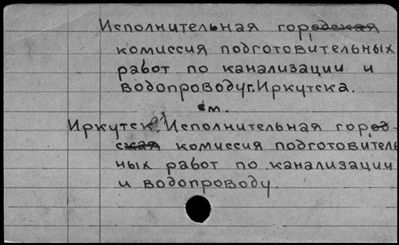 Исполнительная городская
комиссия подготовительных
работ по канализации и
водопроводу г. Иркутска.
см.
Иркутск. Исполнительная город-
ская комиссия подготовитель
ных работ по канализации
и водопроводу.